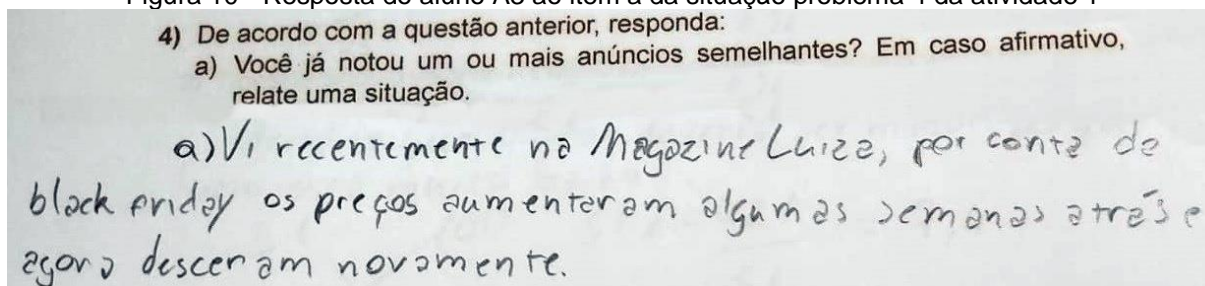 4) De acordo com a questão anterior, responda:
a) Você já notou um ou mais anúncios semelhantes? Em caso afirmativo,
relate uma situação.
a) Vi recentemente na Magazine Luiza, por conta da
black friday os preços aumentaram algumas semanas atrás e
agora desceram novamente.